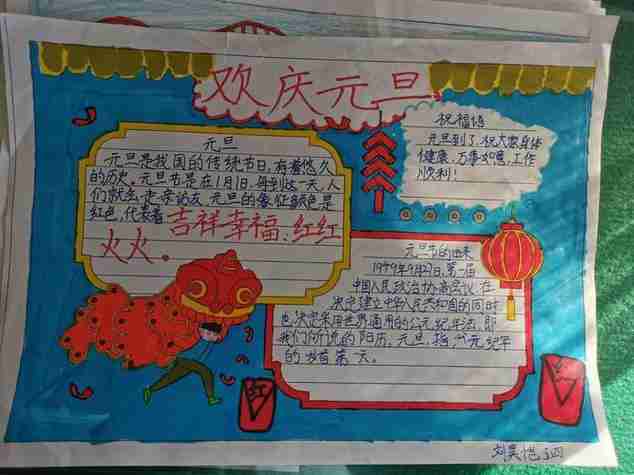 欢庆元旦
祝福语
元旦到了，祝大家身体
健康，万事如意，工作
顺利！
元旦
元旦是我国的传统节日，有着悠久
的历史。元旦节是在1月1日，每到这一天，人
们就会走亲访友，元旦的象征颜色是
红色，代表着吉祥幸福、红红
火火。
元旦节的由来
1949年9月27日，第一届
中国人民政治协商会议，在
决定建立中华人民共和国的同时
也决定采用世界通用的公元纪年法，即
我们所说的阳历，元旦，指公元纪年
的岁首第一天。
红